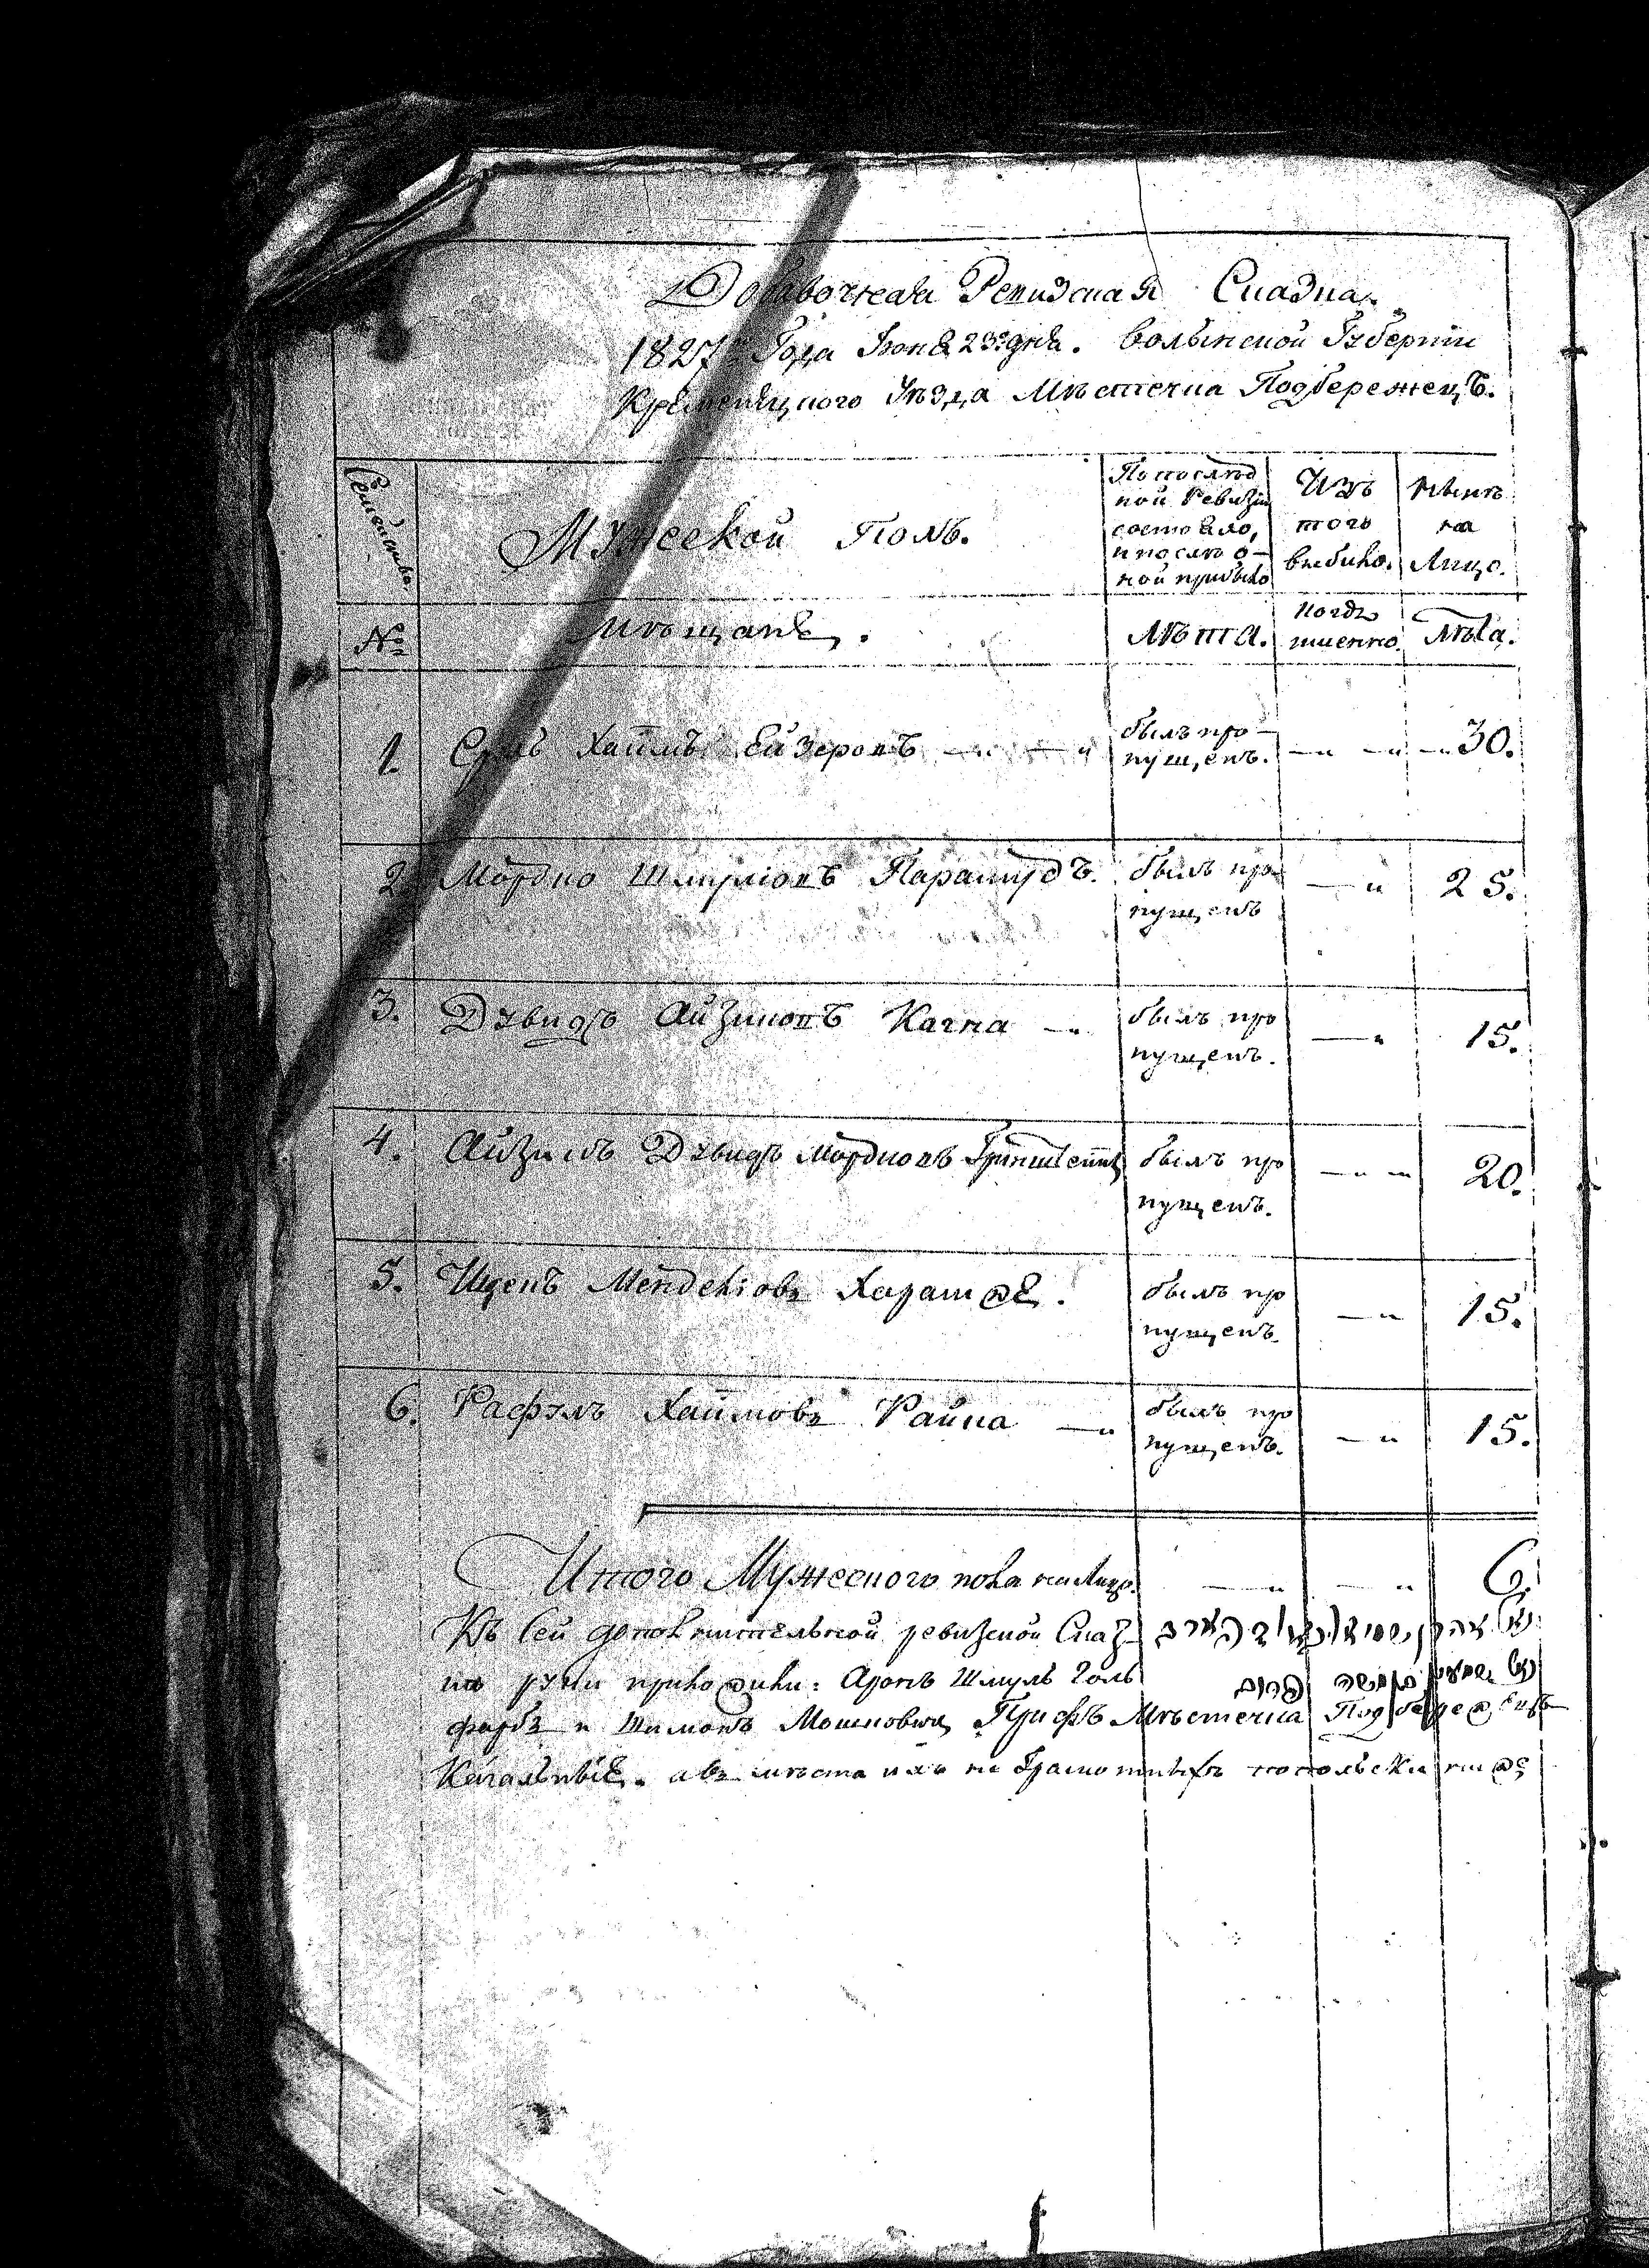 Добавочная Ревизская Сказка
1827 Года Іюня 23го дня. Волынской Губерніи
Кременецкого Уѣзда Мѣстечка Подбережецъ.
Семейства
Мужеской Полъ.
По послѣд
ней Ревизіи
состояло,
и послѣ о-
ной прибыло
Изъ
того
выбыло.
Нынѣ
на
Лицо.
№
Мѣщане.
Лѣта.
Когда
именно.
Лѣта.
1. Хаимъ Ейзеровъ
былъ про-
пущенъ.
30.
2. Мордко Шмуліовъ
былъ про-
пущенъ
25.
3. Дувидъ Айзиковъ Качка
былъ про
пущенъ.
15.
4. Айзикъ Дувидъ Мордковъ Гринштейнъ
былъ про
пущенъ.
20.
5. Ицекъ Менделіовъ
былъ про
пущенъ.
15.
6. Рафэлъ Хаимовъ Райка
былъ про
пущенъ.
15.
Итого Мужеского пола на Лицо.
6.
Къ Сей дополнительной ревизской Сказ-
ке руки приложили: Аронъ Шмуль Голь
фарбъ и Шимонъ Мошковичъ Мѣстечка
Кагальные. а въ мѣсто ихъ не Грамотныхъ попольски